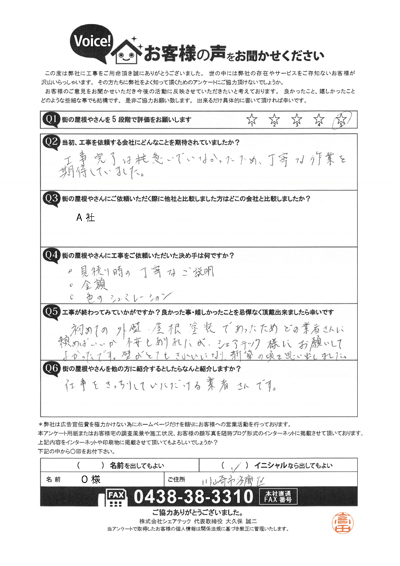 Voice!
お客様の声をお聞かせください
この度は弊社に工事をご用命頂き誠にありがとうございました。 世の中には弊社の存在やサービスをご存知ないお客様が
沢山いらっしゃいます。 その方たちに弊社をよく知って頂くためのアンケートにご協力頂けないでしょうか。
お客様のご意見をお聞かせいただき今後の活動に反映させていただきたいと考えております。 良かったこと、嬉しかったこと
どのような些細な事でも結構です。 是非ご協力お願い致します。 出来るだけ具体的に書いて頂ければ幸いです。
Q1 街の屋根やさんを5段階で評価をお願いします ☆ ☆ ☆ ☆ ☆
Q2 当初、工事を依頼する会社にどんなことを期待されていましたか?
工事完了は特急いでいなかったため、丁寧な作業を
期待していました。
Q3 街の屋根やさんにご依頼いただく際に他社と比較しました方はどこの会社と比較しましたか?
A 社
Q4 街の屋根やさんに工事をご依頼いただいた決め手は何ですか?
・見積り時の丁寧なご説明
・金額
・色のシュミレーション
Q5 工事が終わってみていかがですか?良かった事・嬉しかったことを忌憚なく頂戴出来ましたら幸いです
初めての外壁、屋根塗装であったためどの業者さんに
頼めばいいか不安もありましたが、シェアテック様にお願いして
よかったです。壁がとてもきれいになり、新築の頃を思い出しました。
Q6 街の屋根やさんを他の方に紹介するとしたらなんと紹介しますか?
仕事をきっちりしていただける業者さんです。
*弊社は広告宣伝費を極力かけない為にホームページだけを頼りにお客様への営業活動を行っております。
本アンケート用紙またはお客様宅の調査風景や施工状況、お客様の顔写真を随時ブログ形式のインターネットに掲載させて頂いております。
上記内容をインターネットや印刷物に掲載させて頂いてもよろしいでしょうか?
下記の中から〇印をお付け下さい。
( ) 名前を出してもよい ( ) イニシャルなら出してもよい
名 前 O 様 ご住所 川崎市
FAX 0438-38-3310 本社直通 FAX 番号
ご協力ありがとうございました。
株式会社シェアテック 代表取締役 大久保 誠二
当アンケートで取得したお客様の個人情報は関係法規に基づき厳正に管理いたします。